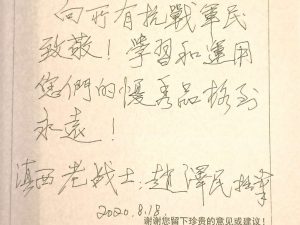 向所有抗戰軍民
致敬！學習和運用
您們的優秀品格到
永遠！
滇西老战士:趙澤民拙筆
2020.8.18.
谢谢您留下珍贵的意见或建议！